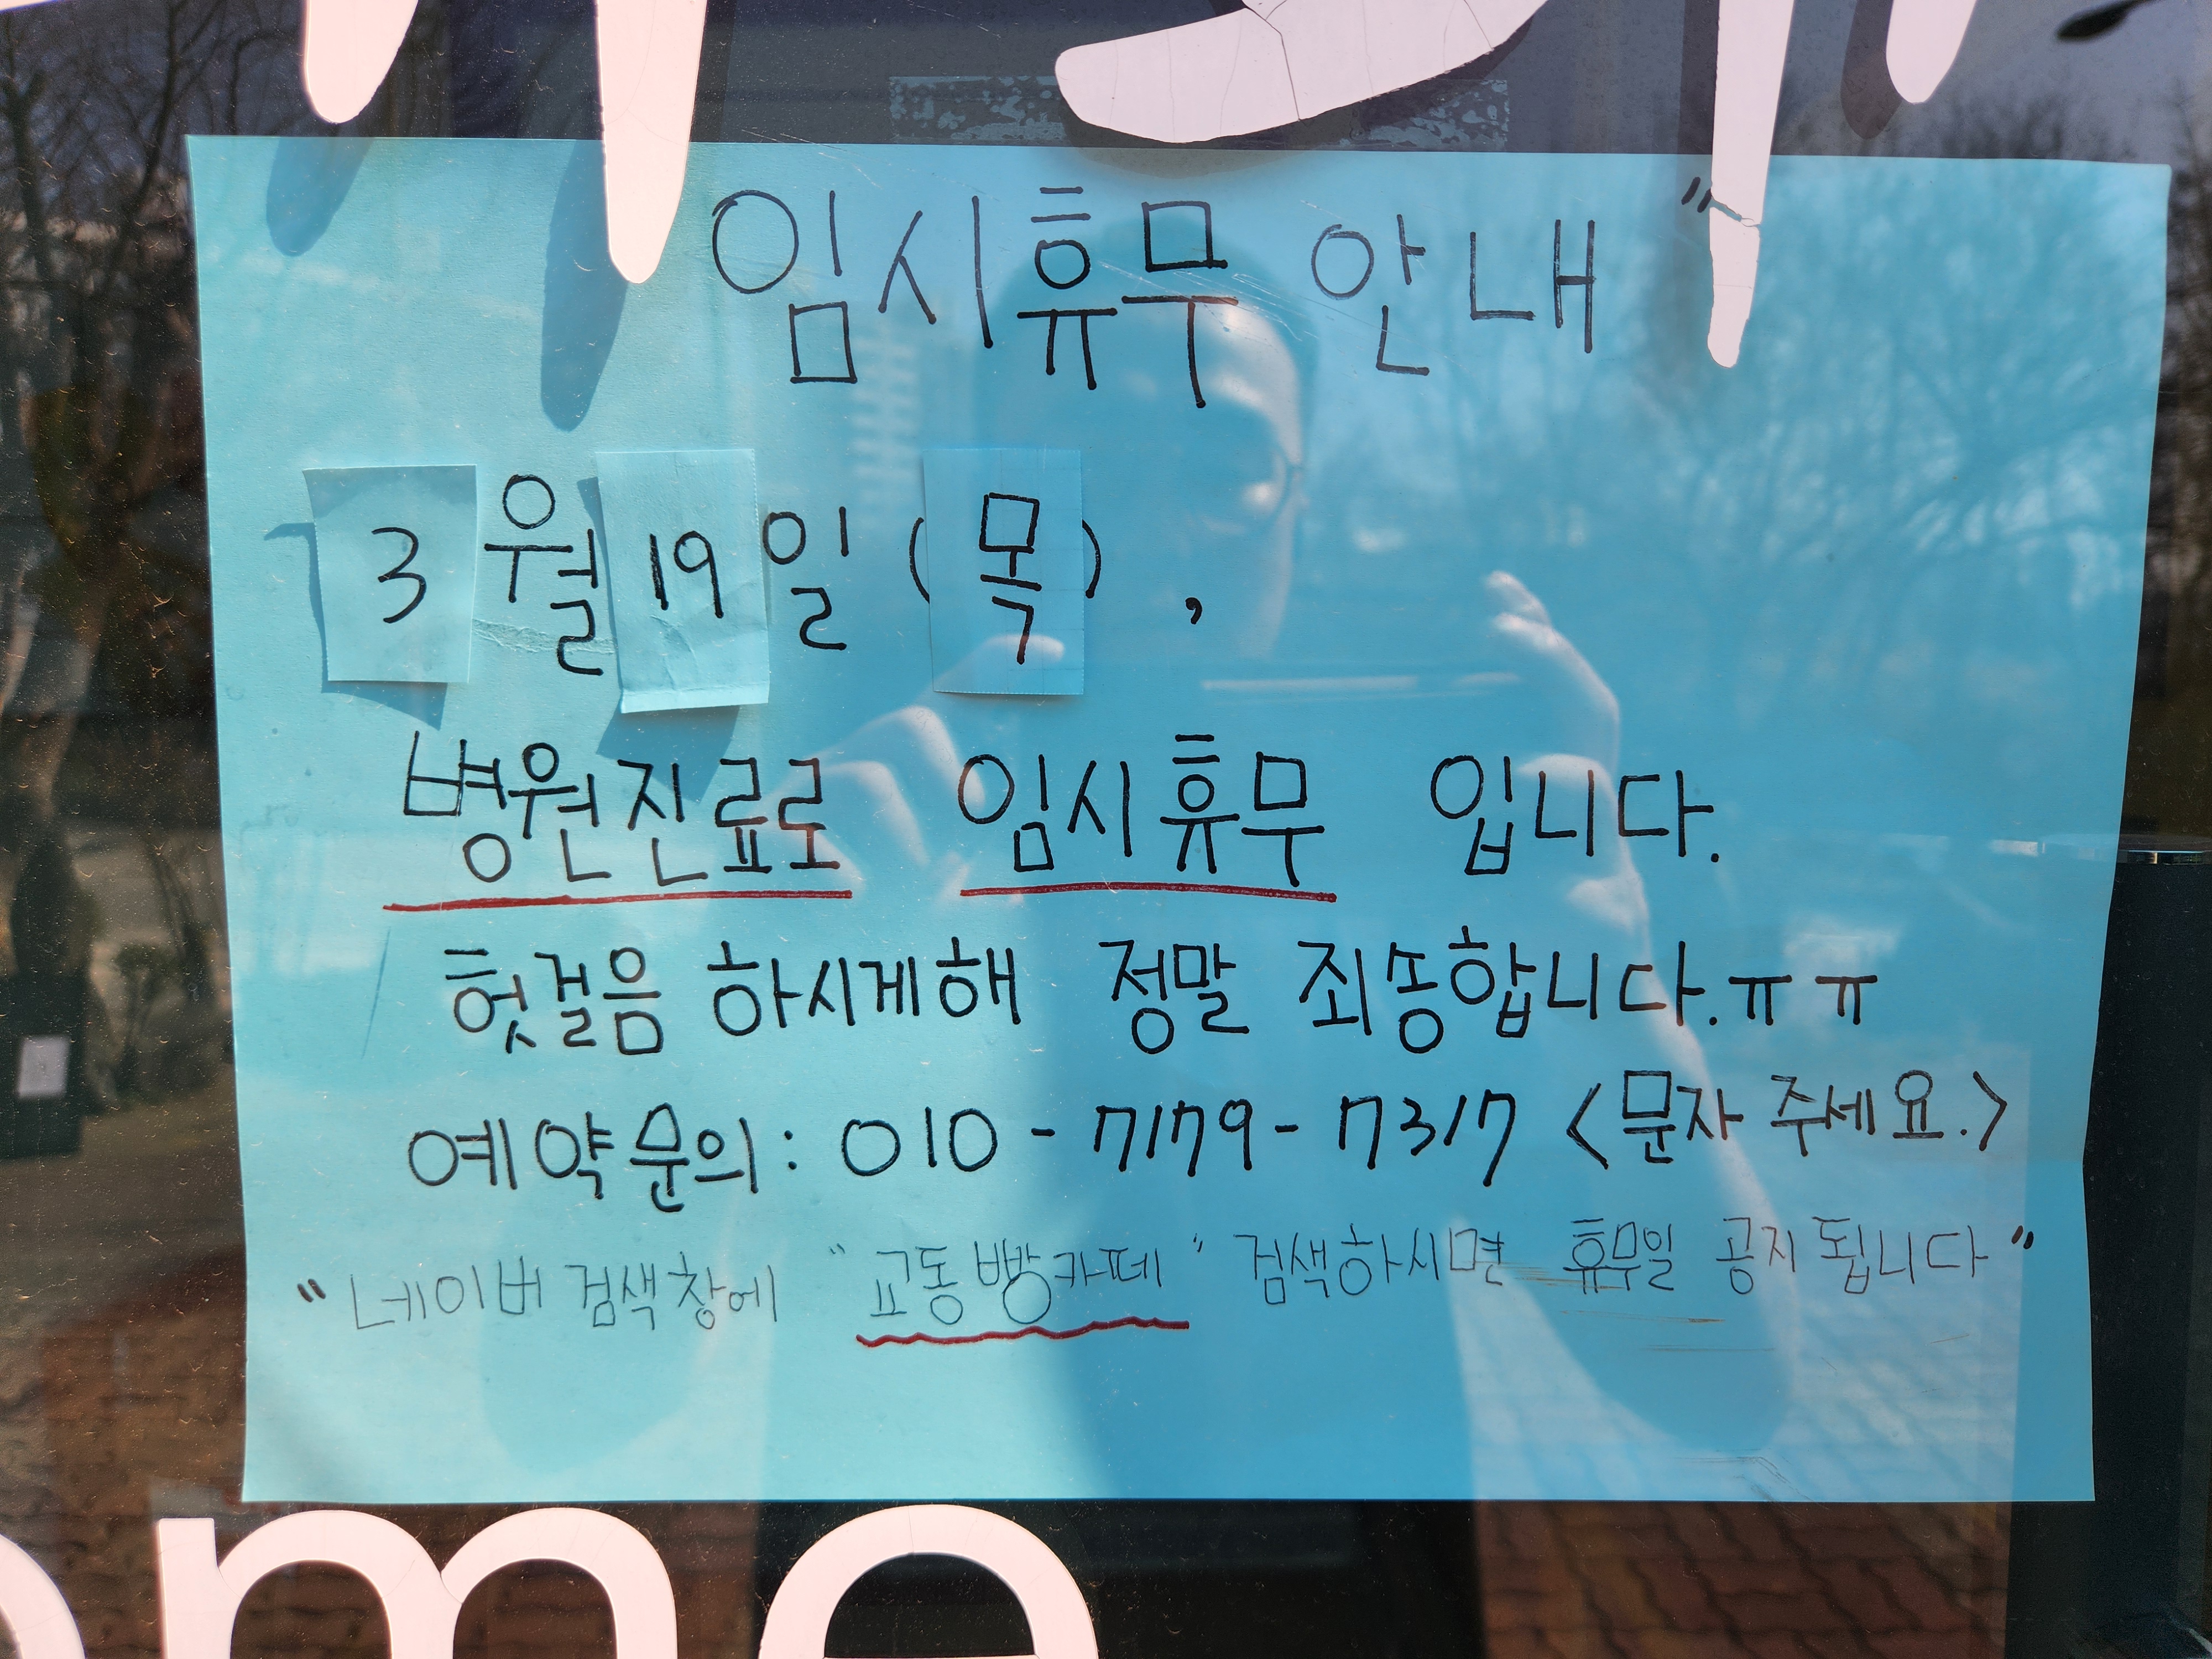 임시휴무 안내 "
3월 19일 (목) ,
병원진료로 임시휴무 입니다.
헛걸음 하시게해 정말 죄송합니다.ㅠㅠ
예약문의 : 010 - 7179 - 7317 <문자 주세요.>
"네이버 검색창에 "교동빵카페" 검색하시면 휴무일 공지됩니다"
me